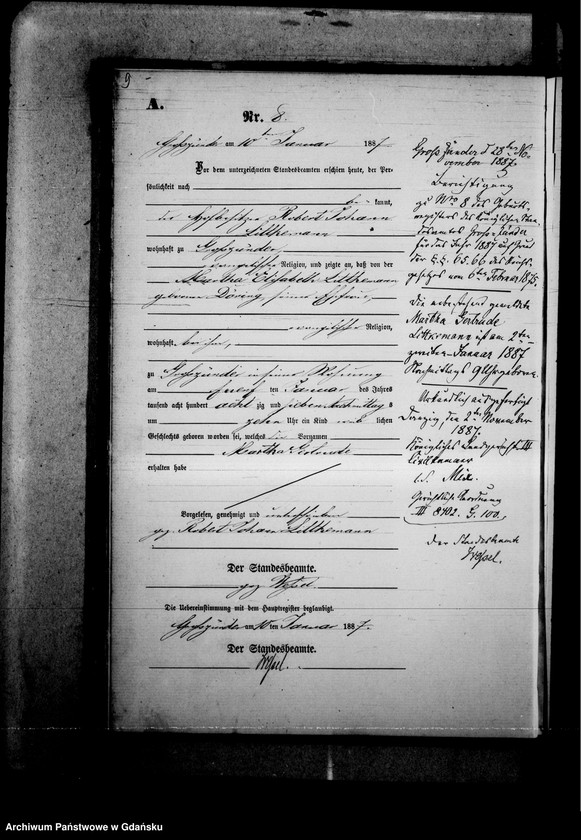 9
A.
Nr. 8.
Großzünder am 10ten Januar 1887.
Vor dem unterzeichneten Standesbeamten erschien heute, der Per-
sönlichkeit nach
be kannt,
der Hofbesitzer Robert Johann
Litthemann
wohnhaft zu Großzünder
evangelischer Religion, und zeigte an, daß von der
Martha Elisabeth Litthemann
geborene Döring, seiner Ehefrau,
evangelischer Religion,
wohnhaft bei ihm,
zu Großzünder in seiner Wohnung
am ten Januar des Jahres
tausend acht hundert achtzig und sieben Nachmittag s
um Uhr ein Kind weib lichen
Geschlechts geboren worden sei, welches die Vornamen
Martha Gertrude
erhalten habe
Vorgelesen, genehmigt und unterschrieben
gez. Robert Johann Litthemann
Der Standesbeamte.
gez. Wessel.
Die Uebereinstimmung mit dem Hauptregister beglaubigt.
Großzünder am 10 ten Januar 1887.
Der Standesbeamte.
Wessel.
Groß Zünder d 28ten No-
vember 1887.
Berichtigung
zu Nro 8 des Geburts-
registers des Königlichen Stan-
desamtes Gross-Zünder
für das Jahr 1887 auf Grund
der §.§. 65. 66 des Reichs-
gesetzes vom 6ten Februar 1875.
Die nebenstehend gemeldete
Martha Gertrude
Litthemann ist am 2ten
zweiten Januar 1887
Nachmittags 9 Uhr geboren.
Urkundlich ausgefertigt
Danzig, den 2ten November
1887.
Königliches Landgericht III
Civilkammer
Gerichtliche Anordnung
III 8402. G. 100.
Der Standesbeamte
Wessel.
Archiwum Państwowe w Gdańsku